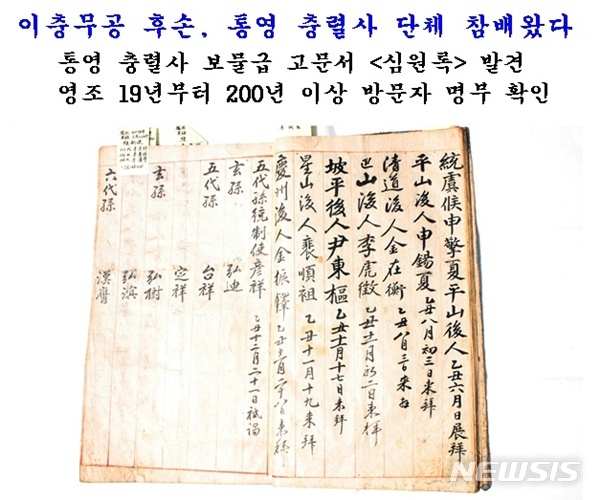 이충무공 후손, 통영 충렬사 단체 참배왔다
통영 충렬사 보물급 고문서 <심원록> 발견
영조 19년부터 200년 이상 방문자 명부 확인
統虞候申擎夏平山後人 乙丑六月日展拜
平山後人申錫夏 乙丑八月初三日來拜
清道後人金在衡 乙丑八月三日來拜
巴山後人李虎徵 乙丑十一月初二日來拜
坡平後人尹東樞 乙丑十一月十七日來拜
星山後人裵順祖 乙丑十一月十九來拜
慶州後人金振鐸 乙丑十二月十八日來拜
五代孫統制使彦祥 乙丑十二月二十一日祗謁
玄孫 弘迪
五代孫 台祥
宖祥
玄孫 弘樹
弘濱
六代孫 漢膺
NEWSIS